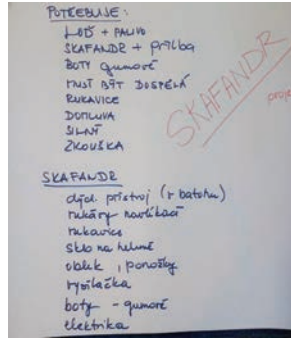 POTŘEBUJE:
LOĎ + PALIVO
SKAFANDR + přilba
BOTY gumové
MUSÍ BÝT DOSPĚLÁ
RUKAVICE
DOMLUVA
SILNÝ
ZKOUŠKA
SKAFANDR
proje
SKAFANDR
dých. přístroj (v batohu)
rukávy navlékací
rukavice
sklo na helmě
oblek, ponožky
vysílačka
boty - gumové
elektrika